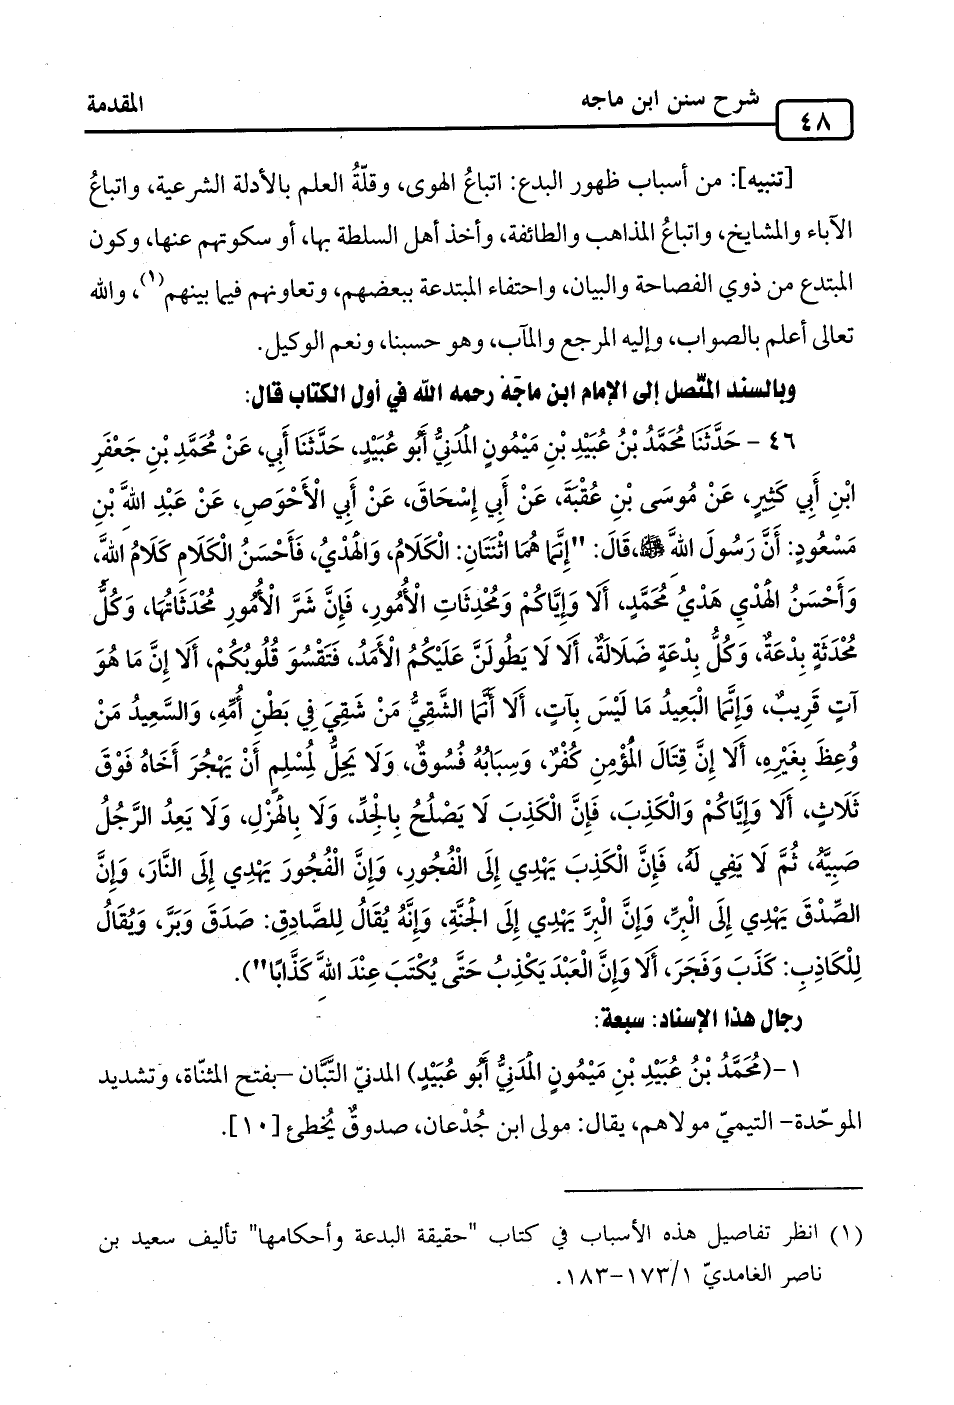 شرح سنن ابن ماجه
المقدمة
٤٨
[تنبيه]: من أسباب ظهور البدع: اتباعُ الهوى، وقلّةُ العلم بالأدلة الشرعية، واتباعُ
الآباء والمشايخ، واتباعُ المذاهب والطائفة، وأخذ أهل السلطة بها، أو سكوتهم عنها، وكون
المبتدع من ذوي الفصاحة والبيان، واحتفاء المبتدعة ببعضهم، وتعاونهم فيما بينهم(١)، والله
تعالى أعلم بالصواب، وإليه المرجع والمآب، وهو حسبنا، ونعم الوكيل.
وبالسند المتّصل إلى الإمام ابن ماجَهْ رحمه الله في أول الكتاب قال:
٤٦ - حَدَّثَنَا مُحَمَّدُ بْنُ عُبَيْدِ بْنِ مَيْمُونٍ المَدَنِيُّ أَبُو عُبَيْدٍ، حَدَّثَنَا أَبِي، عَنْ مُحَمَّدِ بْنِ جَعْفَرِ
ابْنِ أَبِي كَثِيرٍ، عَنْ مُوسَى بْنِ عُقْبَةَ، عَنْ أَبِي إِسْحَاقَ، عَنْ أَبِي الْأَحْوَصِ، عَنْ عَبْدِ اللهِ بْنِ
مَسْعُودٍ: أَنَّ رَسُولَ اللهِ ﷺ،قَالَ: "إِنَّمَا هُمَا اثْنَتَانِ: الْكَلَامُ، وَالْهَدْيُ، فَأَحْسَنُ الْكَلَامِ كَلَامُ اللهِ،
وَأَحْسَنُ الْهَدْيِ هَدْيُ مُحَمَّدٍ، أَلَا وَإِيَّاكُمْ وَمُحْدِثَاتِ الْأُمُورِ، فَإِنَّ شَرَّ الْأُمُورِ مُحْدَثَاتُهَا، وَكُلُّ
مُحْدَثَةٍ بِدْعَةٌ، وَكُلُّ بِدْعَةٍ ضَلَالَةٌ، أَلَا لَا يَطُولَنَّ عَلَيْكُمُ الْأَمَدُ، فَتَقْسُوَ قُلُوبُكُمْ، أَلَا إِنَّ مَا هُوَ
آتٍ قَرِيبٌ، وَإِنَّمَا الْبَعِيدُ مَا لَيْسَ بِآتٍ، أَلَا أَنَّمَا الشَّقِيُّ مَنْ شَقِيَ فِي بَطْنِ أُمِّهِ، وَالسَّعِيدُ مَنْ
وُعِظَ بِغَيْرِهِ، أَلَا إِنَّ قِتَالَ الْمُؤْمِنِ كُفْرٌ، وَسِبَابُهُ فُسُوقٌ، وَلَا يَحِلُّ لِمُسْلِمٍ أَنْ يَهْجُرَ أَخَاهُ فَوْقَ
ثَلَاثٍ، أَلَا وَإِيَّاكُمْ وَالْكَذِبَ، فَإِنَّ الْكَذِبَ لَا يَصْلُحُ بِالْجِدِّ، وَلَا بِالْهَزْلِ، وَلَا يَعِدُ الرَّجُلُ
صَبِيَّهُ، ثُمَّ لَا يَفِي لَهُ، فَإِنَّ الْكَذِبَ يَهْدِي إِلَى الْفُجُورِ، وَإِنَّ الْفُجُورَ يَهْدِي إِلَى النَّارِ، وَإِنَّ
الصِّدْقَ يَهْدِي إِلَى الْبِرِّ، وَإِنَّ الْبِرَّ يَهْدِي إِلَى الجَنَّةِ، وَإِنَّهُ يُقَالُ لِلصَّادِقِ: صَدَقَ وَبَرَّ، وَيُقَالُ
لِلْكَاذِبِ: كَذَبَ وَفَجَرَ، أَلَا وَإِنَّ الْعَبْدَ يَكْذِبُ حَتَّى يُكْتَبَ عِنْدَ اللهِ كَذَّابًا").
رجال هذا الإسناد: سبعة:
١-(مُحَمَّدُ بْنُ عُبَيْدِ بْنِ مَيْمُونٍ المَدَنِيُّ أَبُو عُبَيْدٍ) المدنيّ التَّبَّان –بفتح المثنّاة، وتشديد
الموحّدة– التيميّ مولاهم، يقال: مولى ابن جُدْعان، صدوقٌ يُخطئ [١٠].
(١) انظر تفاصيل هذه الأسباب في كتاب "حقيقة البدعة وأحكامها" تأليف سعيد بن
ناصر الغامديّ ١/١٧٣-١٨٣.